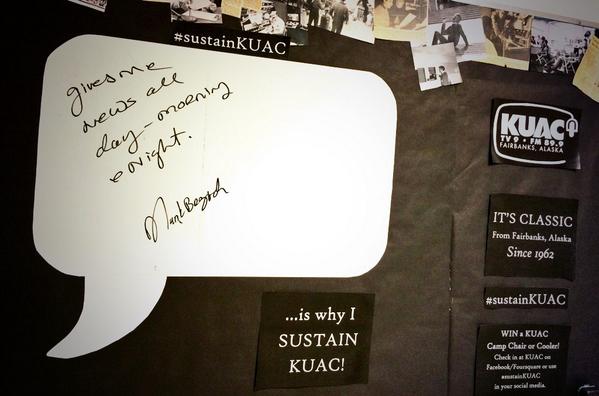 #sustainKUAC
gives me
news all
day - morning
& night.
...is why I
SUSTAIN
KUAC!
KUAC
TV 9 • FM 89.9
FAIRBANKS, ALASKA
IT'S CLASSIC
From Fairbanks, Alaska
Since 1962
#sustainKUAC
WIN a KUAC
Camp Chair or Cooler!
Check in at KUAC on
Facebook/Foursquare or use
#sustainKUAC
in your social media.